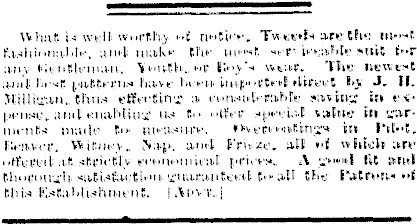 What is well worthy of notice, Tweeds are the most
fashionable, and make the most serviceable suit for
any Gentleman, Youth, or Boy's wear. The newest
and best patterns have been imported direct by J. H.
Milligan, thus effecting a considerable saving in ex-
pense, and enabling us to offer special value in gar-
ments made to measure. Overcoatings in Pilot,
Beaver, Witney, Nap, and Frieze, all of which are
offered at strictly economical prices. A good fit and
thorough satisfaction guaranteed to all the Patrons of
this Establishment. [ADVT.]